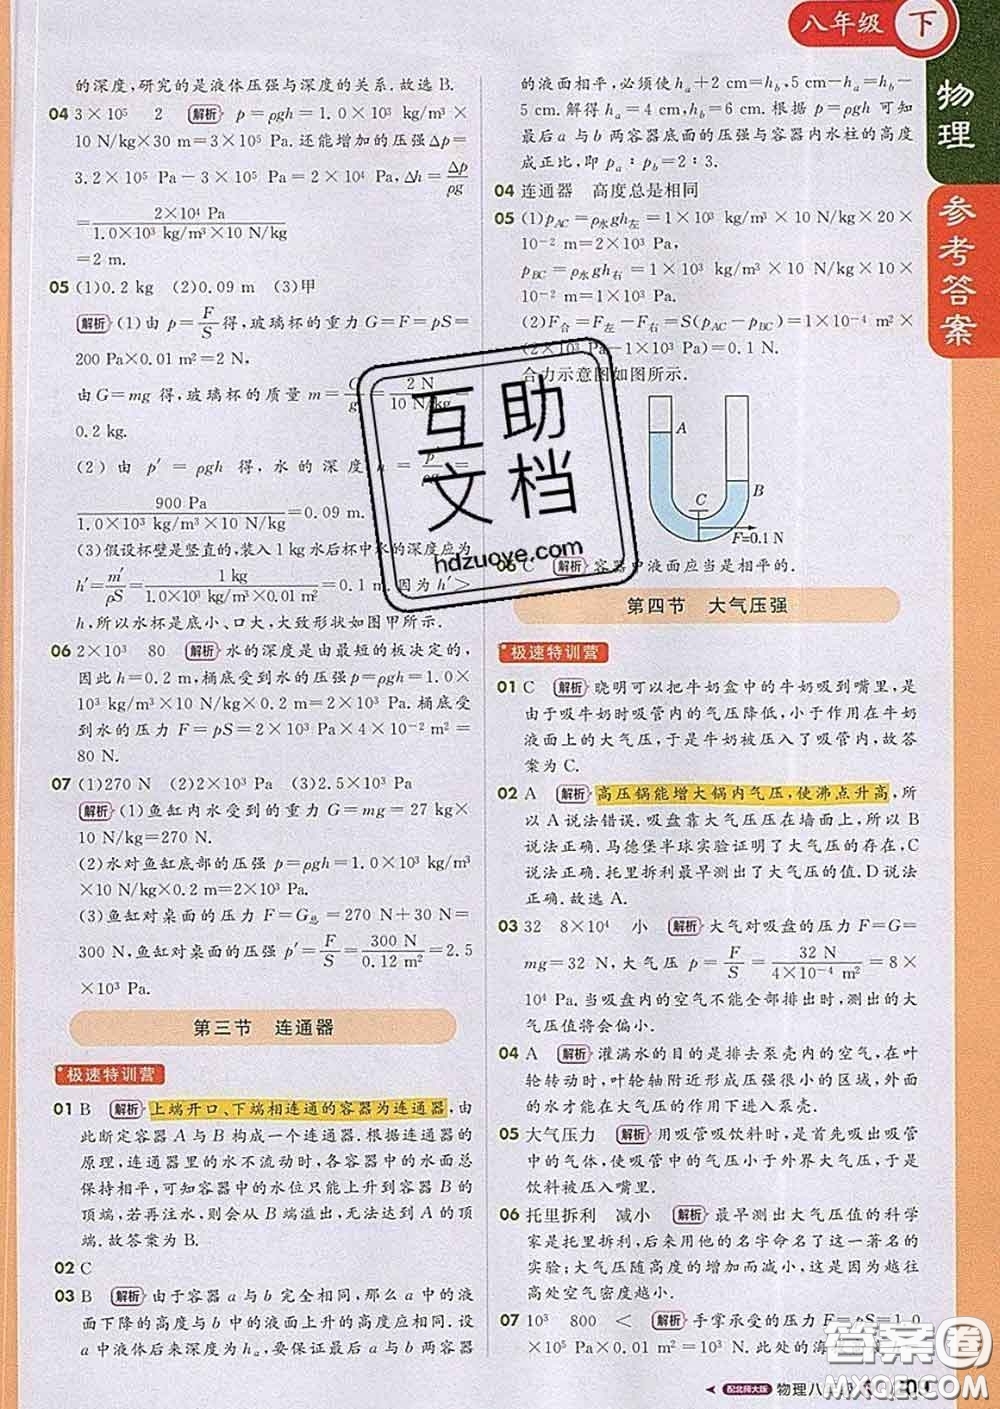 八年级 下
物理
参考答案
的深度,研究的是液体压强与深度的关系.故选 B.
04 3×10⁵ 2 解析 p=ρgh=1.0×10³ kg/m³×
10 N/kg×30 m=3×10⁵ Pa.还能增加的压强Δp=
3.2×10⁵ Pa-3×10⁵ Pa=2×10⁴ Pa,Δh=Δp/ρg
=2×10⁴ Pa/1.0×10³ kg/m³×10 N/kg
=2 m.
05 (1)0.2 kg (2)0.09 m (3)甲
解析 (1)由 p=F/S得,玻璃杯的重力 G=F=pS=
200 Pa×0.01 m²=2 N,
由 G=mg 得,玻璃杯的质量 m=G/g=2 N/10 N/kg
0.2 kg.
(2)由 p′=ρgh 得,水的深度 h=p′/ρg=
900 Pa/1.0×10³ kg/m³×10 N/kg=0.09 m.
(3)假设杯壁是竖直的,装入 1 kg 水后杯中水的深度应为
h′=m′/ρS=1 kg/1.0×10³ kg/m³×0.01 m²=0.1 m.因为 h′>
h,所以水杯是底小、口大,大致形状如图甲所示.
06 2×10³ 80 解析 水的深度是由最短的板决定的,
因此 h=0.2 m,桶底受到水的压强 p=ρgh=1.0×
10³ kg/m³×10 N/kg×0.2 m=2×10³ Pa.桶底受
到水的压力 F=pS=2×10³ Pa×4×10⁻² m²=
80 N.
07 (1)270 N (2)2×10³ Pa (3)2.5×10³ Pa
解析 (1)鱼缸内水受到的重力 G=mg=27 kg×
10 N/kg=270 N.
(2)水对鱼缸底部的压强 p=ρgh=1.0×10³ kg/m³
×10 N/kg×0.2 m=2×10³ Pa.
(3)鱼缸对桌面的压力 F=G总=270 N+30 N=
300 N,鱼缸对桌面的压强 p′=F/S=300 N/0.12 m²=2.5
×10³ Pa.
第三节 连通器
极速特训营
01 B 解析 上端开口、下端相连通的容器为连通器,由
此断定容器 A 与 B 构成一个连通器.根据连通器的
原理,连通器里的水不流动时,各容器中的水面总
保持相平,可知容器中的水位只能上升到容器 B 的
顶端,若再注水,则会从 B 端溢出,无法达到 A 的顶
端.故答案为 B.
02 C
03 B 解析 由于容器 a 与 b 完全相同,那么 a 中的液
面下降的高度与 b 中的液面上升的高度应相同.设
a 中液体后来深度为 hₐ,要保证最后 a 与 b 两容器
的液面相平,必须使 hₐ+2 cm=h_b,5 cm-hₐ=h_b-
5 cm.解得 hₐ=4 cm,h_b=6 cm.根据 p=ρgh 可知
最后 a 与 b 两容器底面的压强与容器内水柱的高度
成正比,即 pₐ:p_b=2:3.
04 连通器 高度总是相同
05 (1)p_AC=ρ水gh左=1×10³ kg/m³×10 N/kg×20×
10⁻² m=2×10³ Pa,
p_BC=ρ水gh右=1×10³ kg/m³×10 N/kg×10×
10⁻² m=1×10³ Pa.
(2)F合=F左-F右=S(p_AC-p_BC)=1×10⁻⁴ m²×
(2×10³ Pa-1×10³ Pa)=0.1 N.
合力示意图如图所示.
A
C
B
F=0.1 N
06 C 解析 容器中液面应当是相平的.
第四节 大气压强
极速特训营
01 C 解析 晓明可以把牛奶盒中的牛奶吸到嘴里,是
由于吸牛奶时吸管内的气压降低,小于作用在牛奶
液面上的大气压,于是牛奶被压入了吸管内.故答
案为 C.
02 A 解析 高压锅能增大锅内气压,使沸点升高,所
以 A 说法错误.吸盘靠大气压压在墙面上,所以 B
说法正确.马德堡半球实验证明了大气压的存在,C
说法正确.托里拆利最早测出了大气压的值.D 说法
正确.故选 A.
03 32 8×10⁴ 小 解析 大气对吸盘的压力 F=G=
mg=32 N,大气压 p=F/S=32 N/4×10⁻⁴ m²=8×
10⁴ Pa.当吸盘内的空气不能全部排出时,测出的大
气压值将会偏小.
04 A 解析 灌满水的目的是排去泵壳内的空气,在叶
轮转动时,在叶轮附近形成压强很小的区域,外面
的水才能在大气压的作用下进入泵壳.
05 大气压力 解析 用吸管吸饮料时,是首先吸出吸管
中的气体,使吸管中的气压小于外界大气压,于是
饮料被压入嘴里.
06 托里拆利 减小 解析 最早测出大气压值的科学
家是托里拆利,后来用他的名字命名了这一著名的
实验;大气压随高度的增加而减小,这是因为越往
高处空气密度越小.
07 10³ 800 < 解析 手掌承受的压力 F=pS=1.0
×10⁵ Pa×
此处的海
配北师大版 物理八
互助文档
hdzuoye.com
答案圈
MXQE.COM